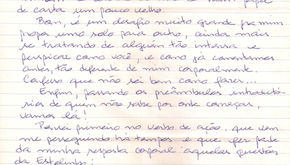 de carta um pouco velho.
Bom, é um desafio muito grande pra mim
propor um solo para outro, ainda mais
se tratando de alguém tão intensa e
perspicaz como você, e como já comentamos
antes, tão diferente de mim corporalmente.
Confesso que não sei bem como fazer...
Enfim, passando os preâmbulos introdutó-
rios de quem não sabe por onde começar,
vamos lá!
Pensei primeiro no verbo de ação, que vem
me perseguindo há tempos e que fez parte
da minha resposta corporal àquelas questões